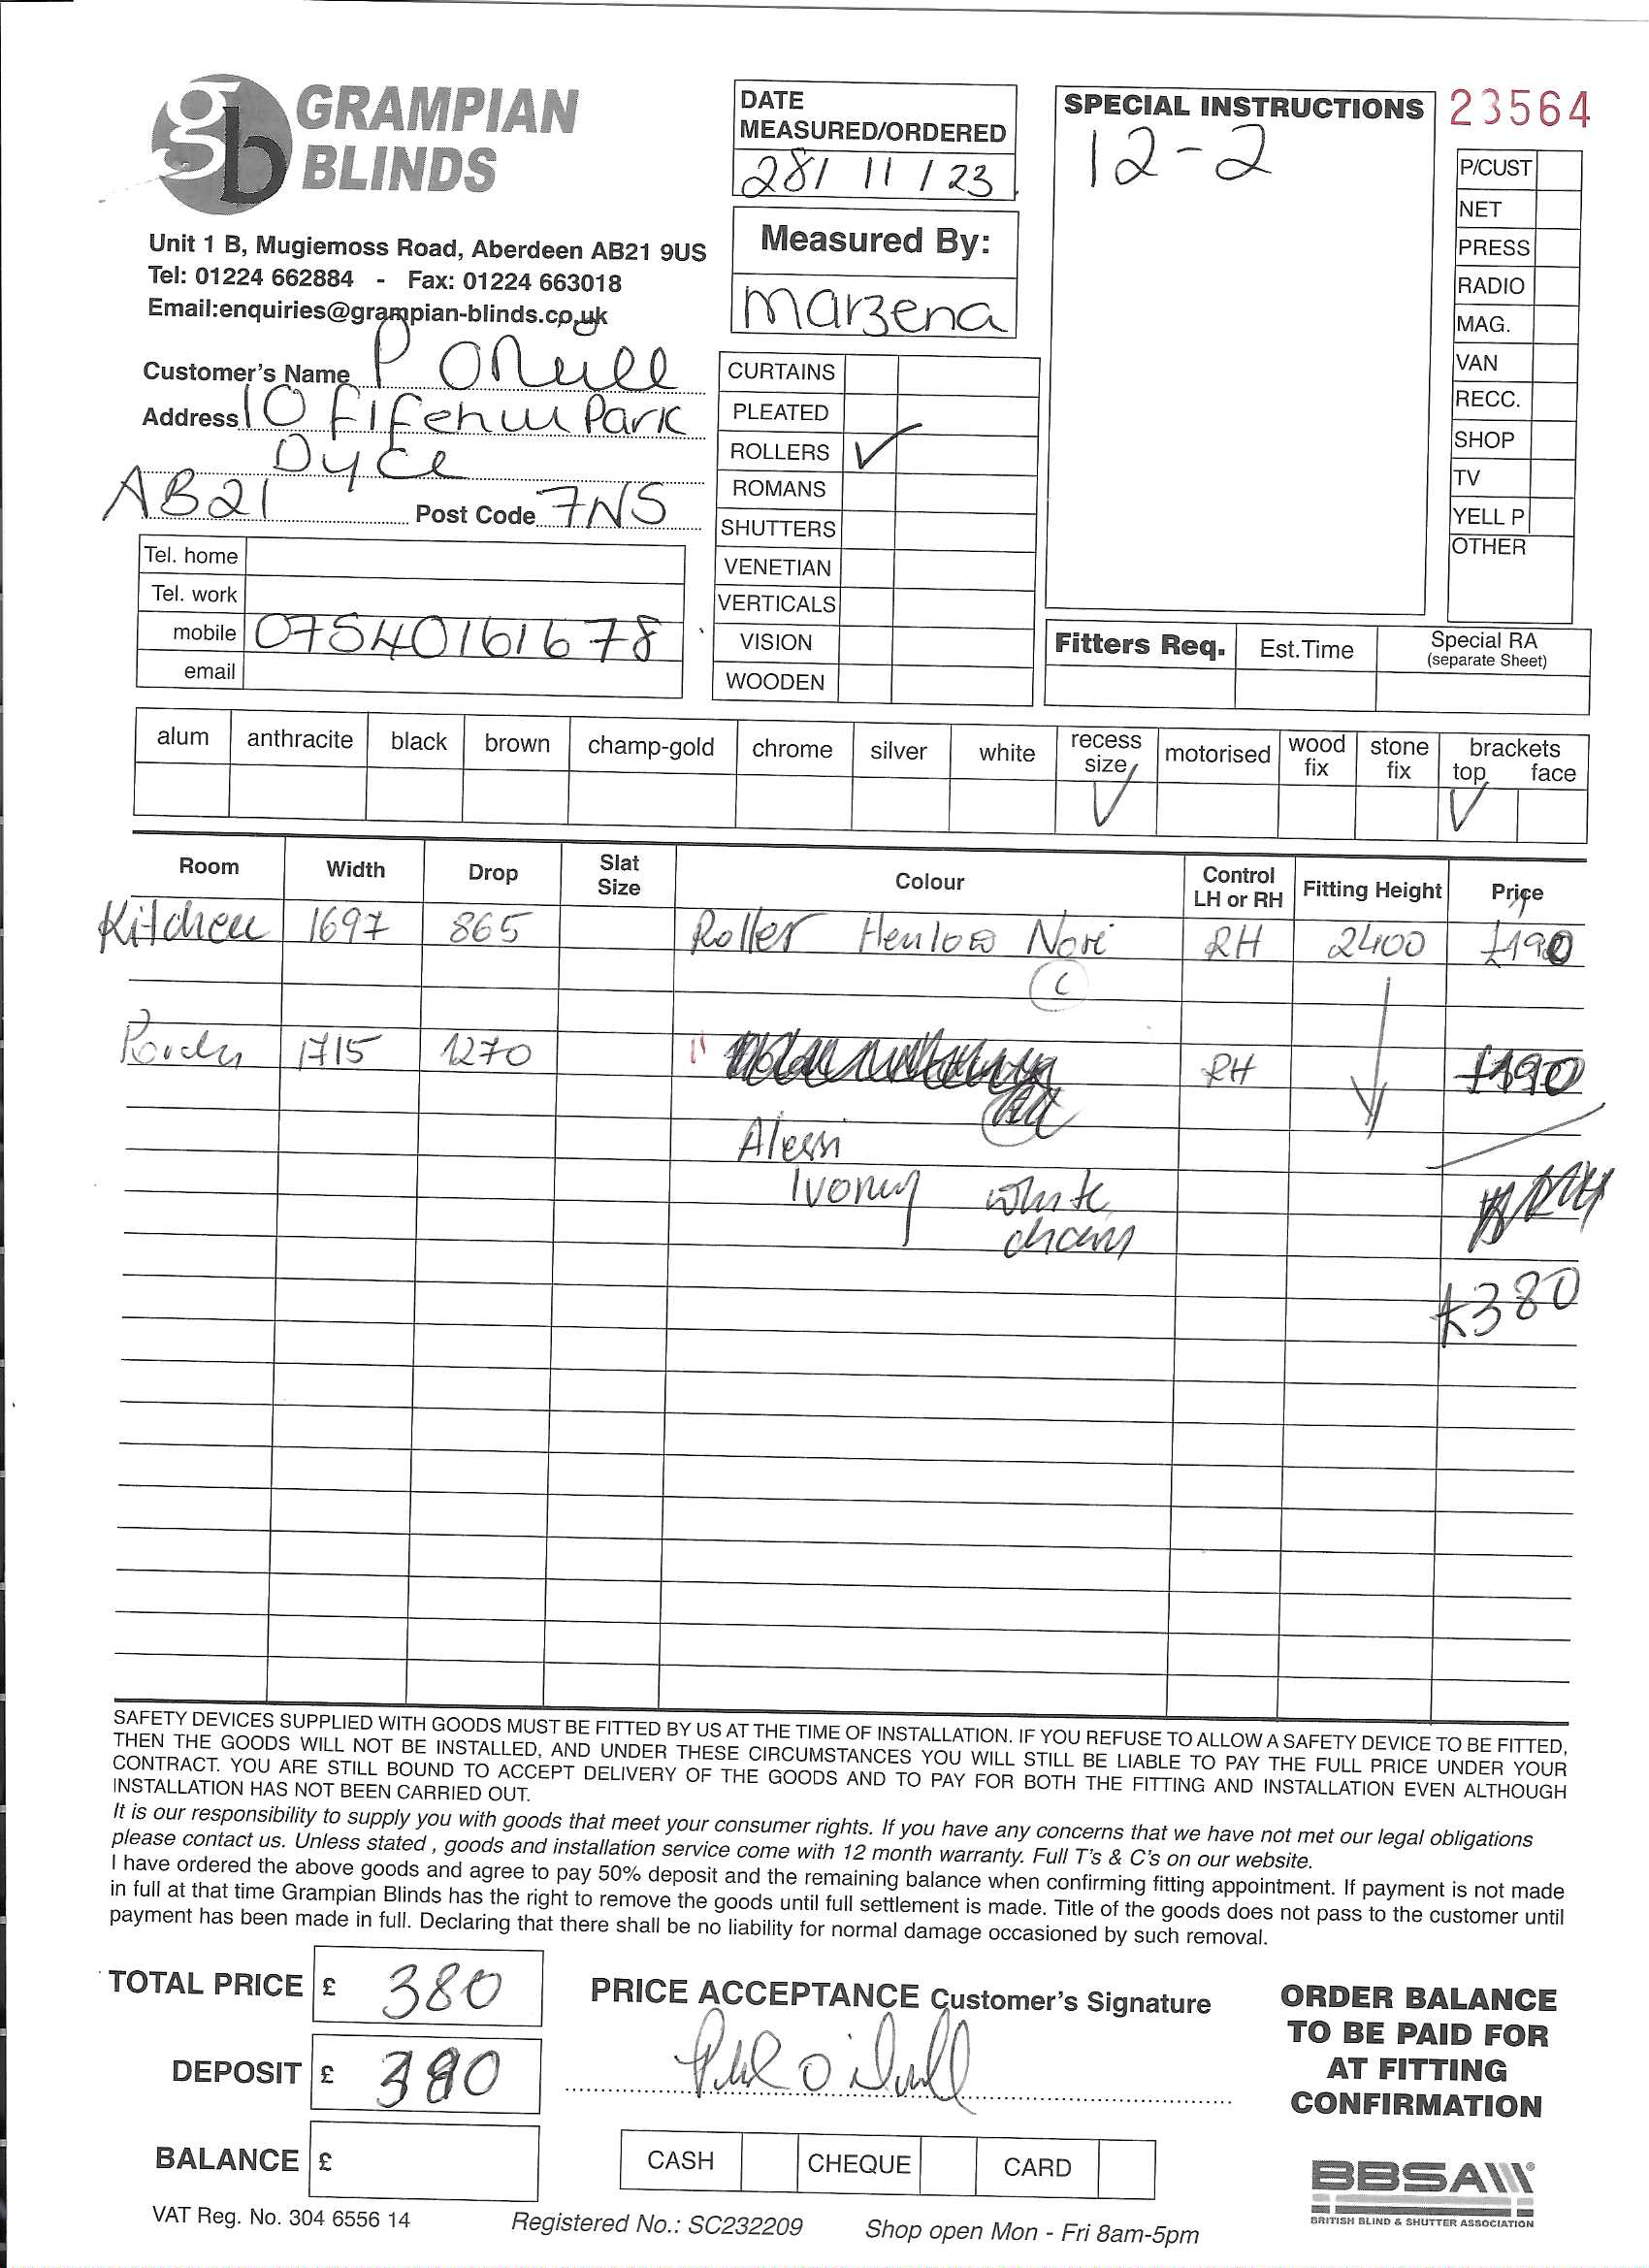 gb GRAMPIAN
BLINDS
Unit 1 B, Mugiemoss Road, Aberdeen AB21 9US
Tel: 01224 662884 - Fax: 01224 663018
Email:enquiries@grampian-blinds.co.uk
Customer's Name P ONeill
Address 10 Fifehill Park
Dyce
AB21 Post Code 7NS
Tel. home
Tel. work
mobile 07540161678
email
DATE
MEASURED/ORDERED
28/ 11 / 23
Measured By:
Marzena
CURTAINS
PLEATED
ROLLERS ✓
ROMANS
SHUTTERS
VENETIAN
VERTICALS
VISION
WOODEN
SPECIAL INSTRUCTIONS
12-2
23564
P/CUST
NET
PRESS
RADIO
MAG.
VAN
RECC.
SHOP
TV
YELL P
OTHER
Fitters Req. Est.Time Special RA
(separate Sheet)
alum anthracite black brown champ-gold chrome silver white recess size motorised wood fix stone fix brackets top face
✓ ✓
Room Width Drop Slat Size Colour Control LH or RH Fitting Height Price
Kitchen 1697 865 Roller Henlow Nori RH 2400 £190
C
1715 1270 " RH £190
Alessi
Ivorey white
chain
£380
SAFETY DEVICES SUPPLIED WITH GOODS MUST BE FITTED BY US AT THE TIME OF INSTALLATION. IF YOU REFUSE TO ALLOW A SAFETY DEVICE TO BE FITTED,
THEN THE GOODS WILL NOT BE INSTALLED, AND UNDER THESE CIRCUMSTANCES YOU WILL STILL BE LIABLE TO PAY THE FULL PRICE UNDER YOUR
CONTRACT. YOU ARE STILL BOUND TO ACCEPT DELIVERY OF THE GOODS AND TO PAY FOR BOTH THE FITTING AND INSTALLATION EVEN ALTHOUGH
INSTALLATION HAS NOT BEEN CARRIED OUT.
It is our responsibility to supply you with goods that meet your consumer rights. If you have any concerns that we have not met our legal obligations
please contact us. Unless stated , goods and installation service come with 12 month warranty. Full T's & C's on our website.
I have ordered the above goods and agree to pay 50% deposit and the remaining balance when confirming fitting appointment. If payment is not made
in full at that time Grampian Blinds has the right to remove the goods until full settlement is made. Title of the goods does not pass to the customer until
payment has been made in full. Declaring that there shall be no liability for normal damage occasioned by such removal.
TOTAL PRICE £ 380
DEPOSIT £ 380
BALANCE £
PRICE ACCEPTANCE Customer's Signature
CASH CHEQUE CARD
ORDER BALANCE
TO BE PAID FOR
AT FITTING
CONFIRMATION
BBSA
BRITISH BLIND & SHUTTER ASSOCIATION
VAT Reg. No. 304 6556 14 Registered No.: SC232209 Shop open Mon - Fri 8am-5pm